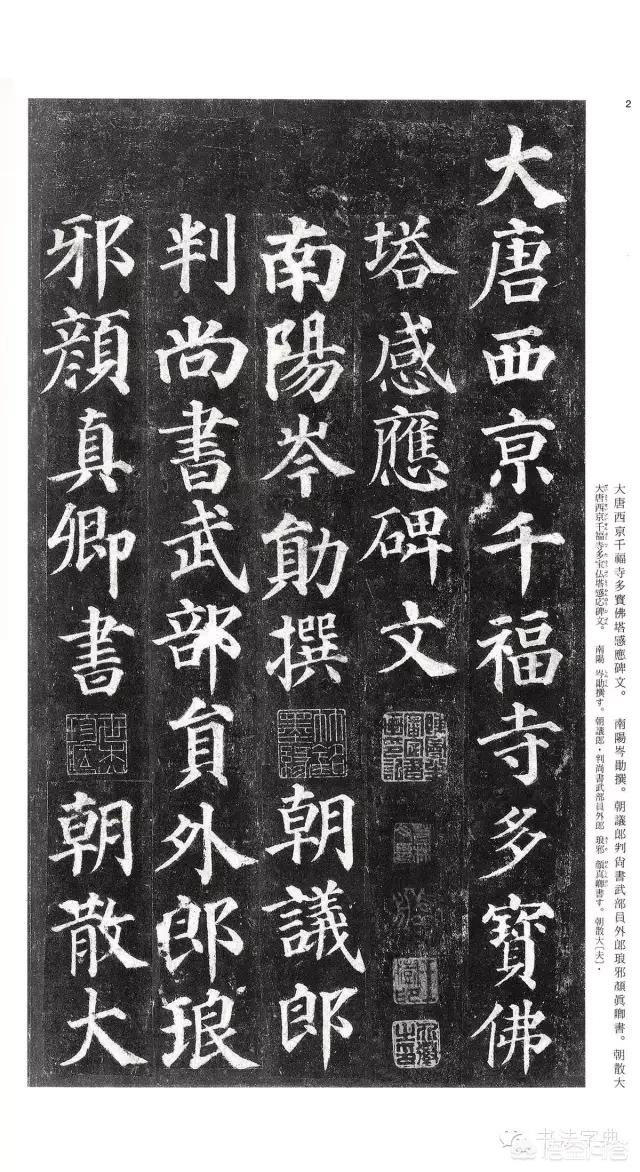 2
大唐西京千福寺多寶佛
塔感應碑文
南陽岑勛撰 朝議郎
判尚書武部員外郎琅
邪顏真卿書 朝散大
大唐西京千福寺多寶佛塔感應碑文。 南陽岑勛撰。朝議郎判尚書武部員外郎琅邪顏眞卿書。朝散大
大唐西京千福寺多宝仏塔感応碑文。 南陽 岑勛撰す。朝議郎・判尚書武部員外郎 琅邪 顔真卿書す。朝散大(夫)・
书法字典
悟空问答